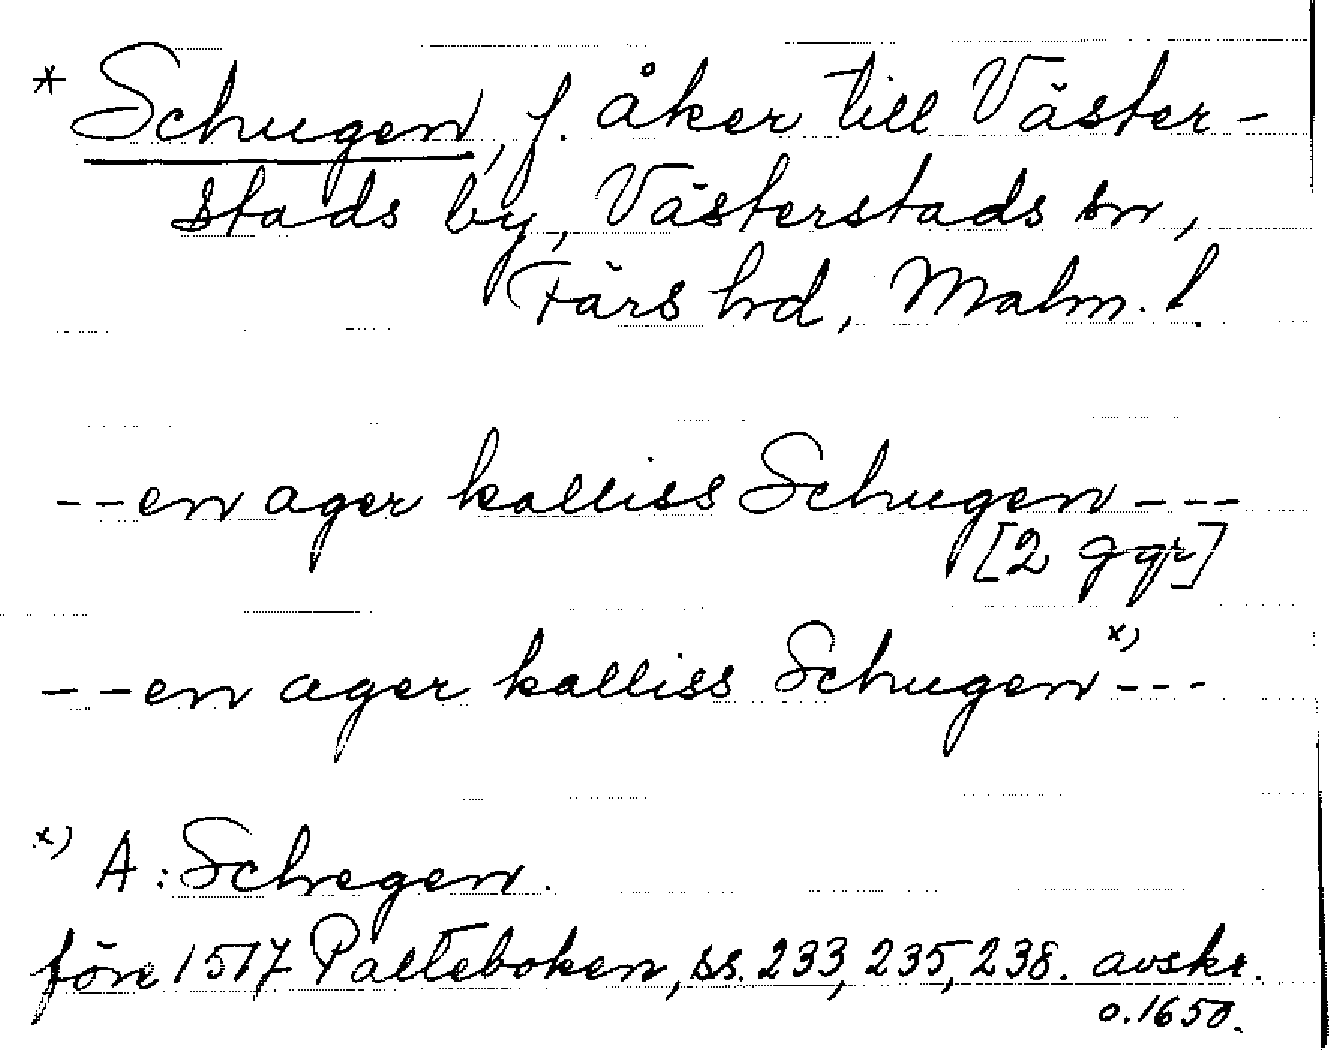 * Schugen, f. åker till Väster-
stads by, Västerstads sn,
Färs hd, Malm. l.
--en ager kalliss Schugen---
[2 ggr]
--en ager kalliss Schugen x)---
x) A: Schegen.
före 1517 Palteboken, ss. 233, 235, 238. avskr.
o. 1650.